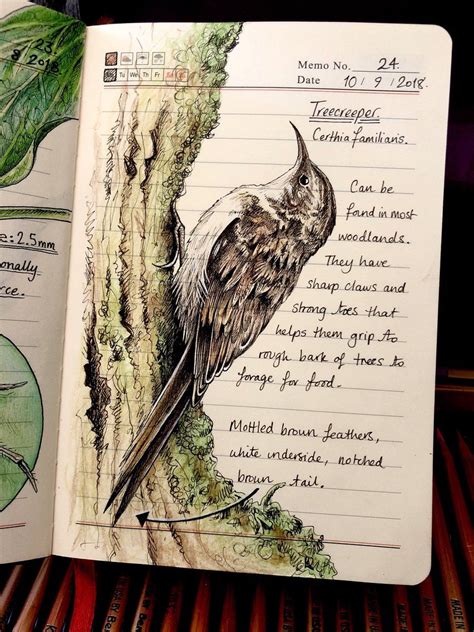 23.
8 2018.
e: 2.5mm
onally
rce.
Memo No. 24.
Date 10/9/2018.
Tu We Thu Fri
Treecreeper.
Certhia familiaris.
Can be
found in most
woodlands.
They have
sharp claws and
strong toes that
helps them grip to
rough bark of trees to
forage for food.
Mottled brown feathers,
white underside, notched
brown tail.